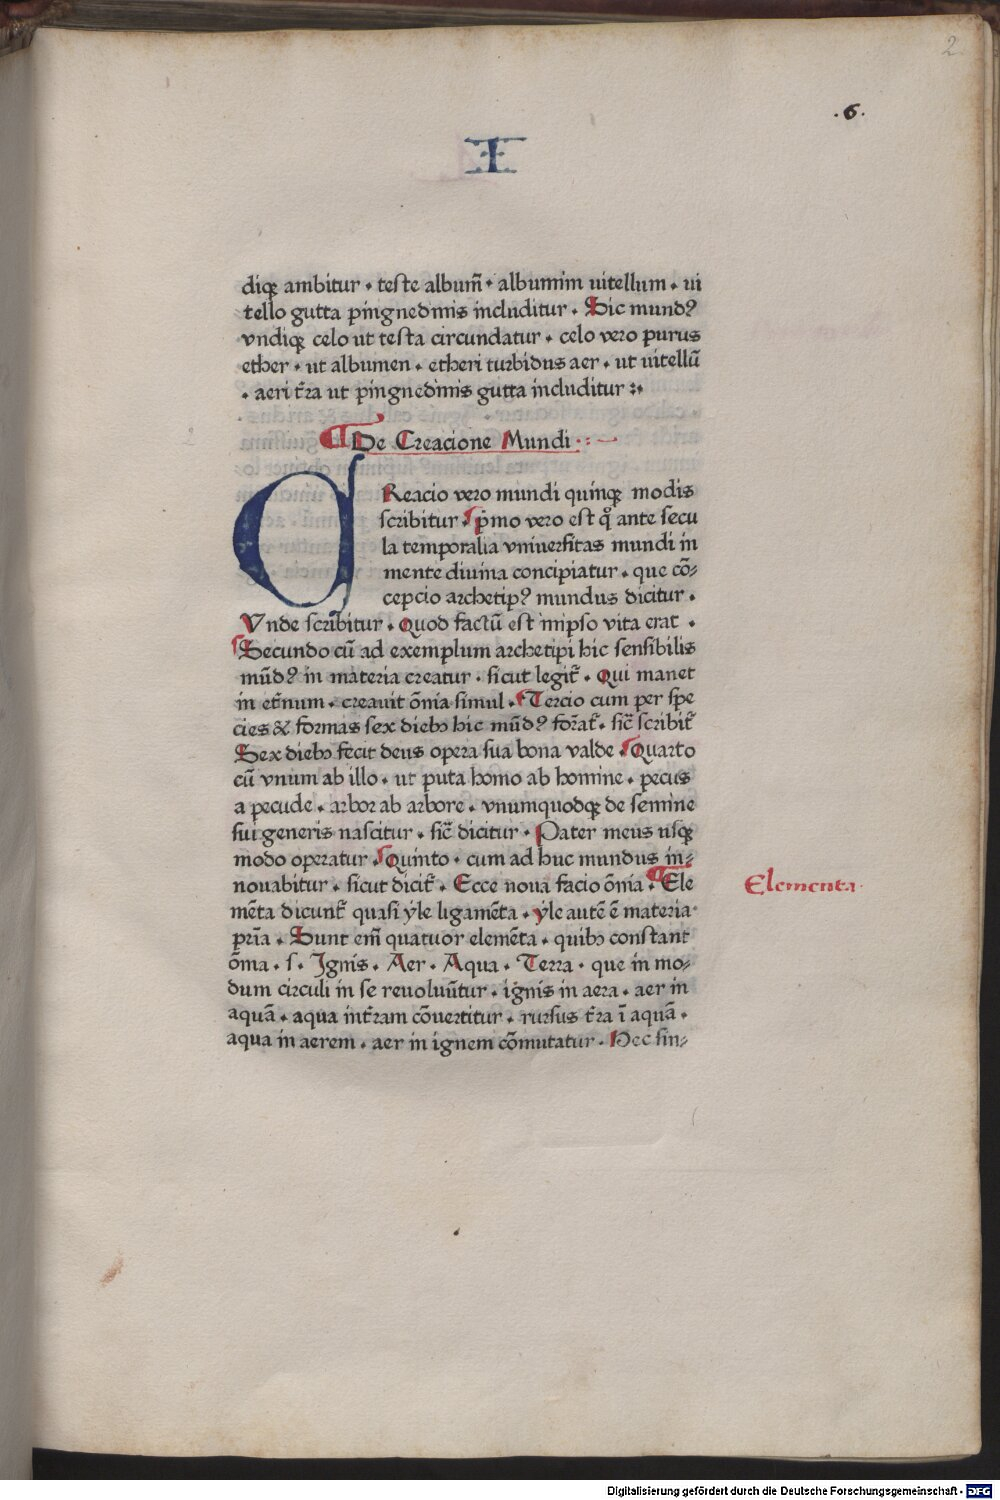 2
.6.
I
diqꝫ ambitur · teste albūm̄ · albumīm uitellum · ui
tello gutta pīngnedīnis includitur · Sic mundꝰ
vndiqꝫ celo ut testa circundatur · celo vero purus
ether · ut albumen · etheri turbidus aer · ut uitellū
· aeri t̄ra ut pīngnedīnis gutta includitur :·
¶ De Creacione Mundi · : ~
CReacio vero mundi quīnqꝫ modis
scribitur · p̄mo vero est qͦ ante secu
la temporalia vniuersitas mundi in
mente diuina concipiatur · que cō⸗
cepcio archetipꝰ mundus dicitur ·
Vnde scribitur · Quod factū est inipso vita erat ·
Secundo cū ad exemplum archetipi hic sensibilis
mūdꝰ in materia creatur · sicut legit̄ · Qui manet
in et̄num · creauit ōnia simul · Tercio cum per spe
cies & formas sex diebꝫ hic mūdꝰ for̄at̄ · sic̄ scribit̄
Sex diebꝫ fecit deus opera sua bona valde · Quarto
cū vnum ab illo · ut puta homo ab homine · pecus
a pecude · arbor ab arbore · vnumquodqꝫ de semine
sui generis nascitur · sic̄ dicitur · Pater meus usqꝫ
modo operatur · Quinto · cum ad huc mundus in⸗
nouabitur · sicut dicit̄ · Ecce noua facio ōnia · ¶ Ele
Elementa·
mēta dicunt̄ quasi yle ligamēta · yle autē ē materia
prīa · Sunt em̄ quatuor elemēta · quibꝫ constant
ōma · s · Ignis · Aer · Aqua · Terra · que in mo⸗
dum circuli in se reuoluūtur · ignis in aera · aer in
aquā · aqua int̄ram cōuertitur · rursus t̄ra ī aquā ·
aqua in aerem · aer in ignem cōmutatur · Hec sin⸗
Digitalisierung gefördert durch die Deutsche Forschungsgemeinschaft - DFG